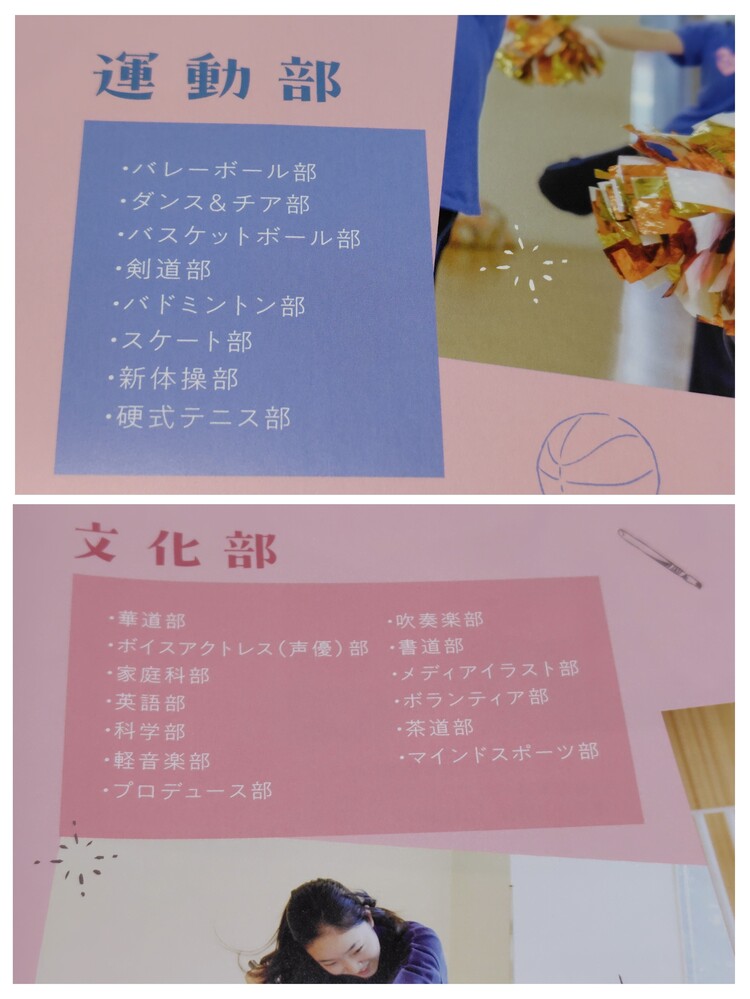 運動部
・バレーボール部
・ダンス&チア部
・バスケットボール部
・剣道部
・バドミントン部
・スケート部
・新体操部
・硬式テニス部
文化部
・華道部
・ボイスアクトレス(声優)部
・家庭科部
・英語部
・科学部
・軽音楽部
・プロデュース部
・吹奏楽部
・書道部
・メディアイラスト部
・ボランティア部
・茶道部
・マインドスポーツ部